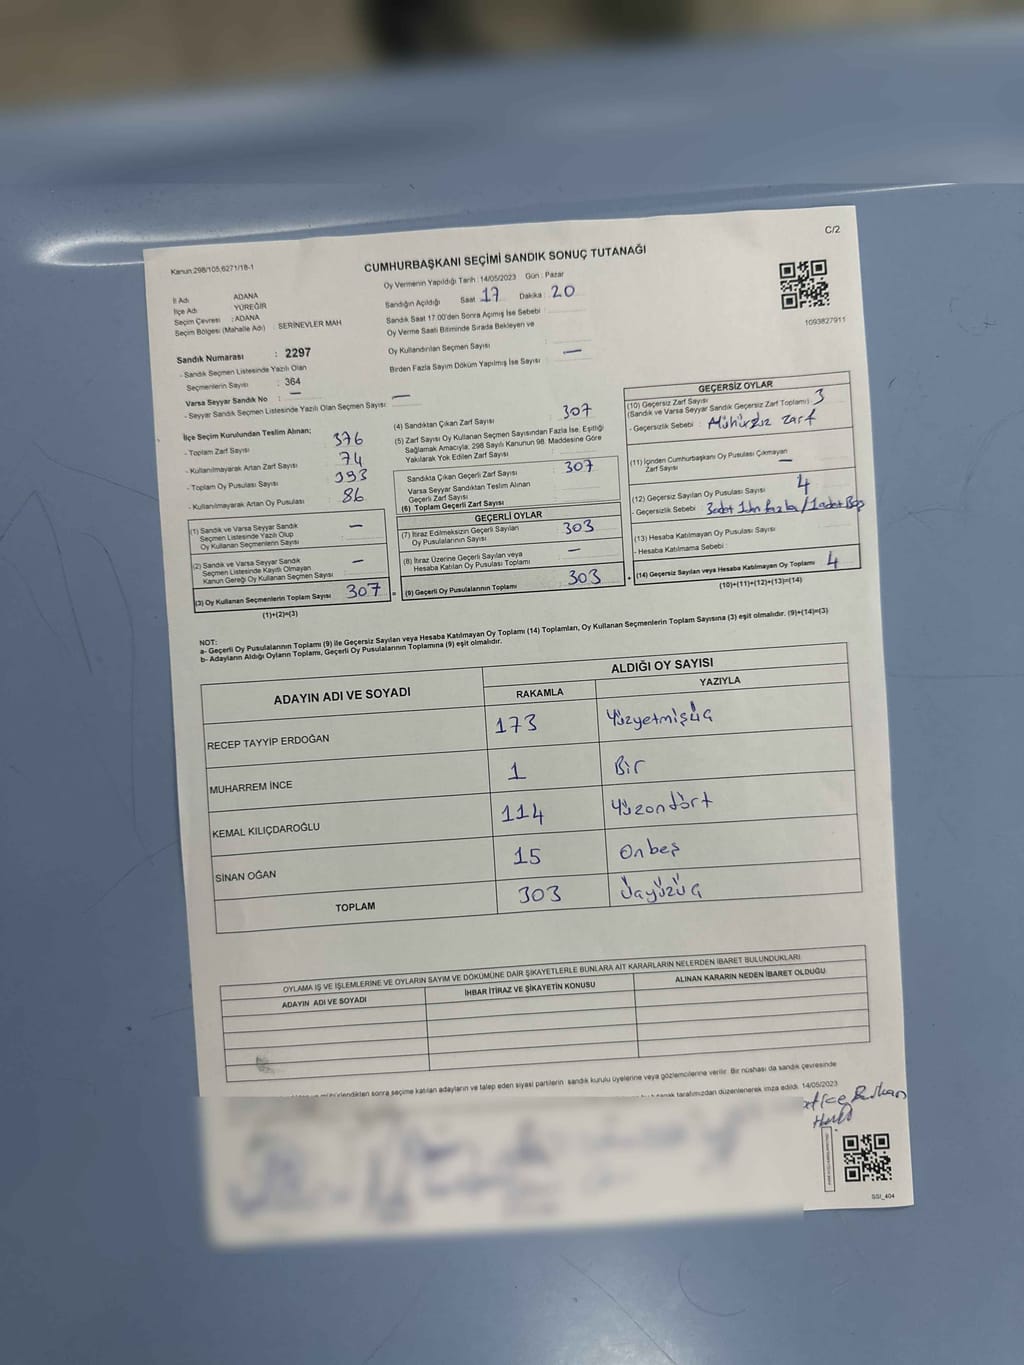 C/2
Kanun:298/105;6271/18-1
CUMHURBAŞKANI SEÇİMİ SANDIK SONUÇ TUTANAĞI
Oy Vermenin Yapıldığı Tarih : 14/05/2023 Gün : Pazar
İl Adı ADANA
İlçe Adı YÜREĞİR
Seçim Çevresi : ADANA
Seçim Bölgesi (Mahalle Adı) : SERİNEVLER MAH
Sandığın Açıldığı Saat : 17 Dakika : 20
Sandık Saat 17:00'den Sonra Açmış İse Sebebi
Oy Verme Saati Bitiminde Sırada Bekleyen ve
Oy Kullandırılan Seçmen Sayısı
Birden Fazla Sayım Döküm Yapılmış İse Sayısı : —
1093827911
Sandık Numarası : 2297
- Sandık Seçmen Listesinde Yazılı Olan
Seçmenlerin Sayısı : 364
Varsa Seyyar Sandık No : —
- Seyyar Sandık Seçmen Listesinde Yazılı Olan Seçmen Sayısı: —
İlçe Seçim Kurulundan Teslim Alınan;
- Toplam Zarf Sayısı 376
- Kullanılmayarak Artan Zarf Sayısı 74
- Toplam Oy Pusulası Sayısı 393
- Kullanılmayarak Artan Oy Pusulası 86
(1) Sandık ve Varsa Seyyar Sandık
Seçmen Listesinde Yazılı Olup
Oy Kullanan Seçmenlerin Sayısı —
(2) Sandık ve Varsa Seyyar Sandık
Seçmen Listesinde Kayıtlı Olmayan
Kanun Gereği Oy Kullanan Seçmen Sayısı —
(3) Oy Kullanan Seçmenlerin Toplam Sayısı 307 =
(1)+(2)=(3)
(4) Sandıktan Çıkan Zarf Sayısı 307
(5) Zarf Sayısı Oy Kullanan Seçmen Sayısından Fazla İse, Eşitliği
Sağlamak Amacıyla; 298 Sayılı Kanunun 98. Maddesine Göre
Yakılarak Yok Edilen Zarf Sayısı
Sandıkta Çıkan Geçerli Zarf Sayısı 307
Varsa Seyyar Sandıktan Teslim Alınan
Geçerli Zarf Sayısı
(6) Toplam Geçerli Zarf Sayısı
GEÇERLİ OYLAR
(7) İtiraz Edilmeksizin Geçerli Sayılan
Oy Pusulalarının Sayısı 303
(8) İtiraz Üzerine Geçerli Sayılan veya
Hesaba Katılan Oy Pusulası Toplamı —
(9) Geçerli Oy Pusulalarının Toplamı 303 +
GEÇERSİZ OYLAR
(10) Geçersiz Zarf Sayısı
(Sandık ve Varsa Seyyar Sandık Geçersiz Zarf Toplamı) : 3
- Geçersizlik Sebebi : Mühürsüz zarf
(11) İçinden Cumhurbaşkanı Oy Pusulası Çıkmayan
Zarf Sayısı —
(12) Geçersiz Sayılan Oy Pusulası Sayısı 4
- Geçersizlik Sebebi 3 adet 1 den fazla / 1 adet Boş
(13) Hesaba Katılmayan Oy Pusulası Sayısı
- Hesaba Katılmama Sebebi
(14) Geçersiz Sayılan veya Hesaba Katılmayan Oy Toplamı 4
(10)+(11)+(12)+(13)=(14)
NOT:
a- Geçerli Oy Pusulalarının Toplamı (9) ile Geçersiz Sayılan veya Hesaba Katılmayan Oy Toplamı (14) Toplamları, Oy Kullanan Seçmenlerin Toplam Sayısına (3) eşit olmalıdır. (9)+(14)=(3)
b- Adayların Aldığı Oyların Toplamı, Geçerli Oy Pusulalarının Toplamına (9) eşit olmalıdır.
ADAYIN ADI VE SOYADI ALDIĞI OY SAYISI
RAKAMLA YAZIYLA
RECEP TAYYİP ERDOĞAN 173 Yüzyetmişüç
MUHARREM İNCE 1 Bir
KEMAL KILIÇDAROĞLU 114 Yüzondört
SİNAN OĞAN 15 Onbeş
TOPLAM 303 Üçyüzüç
OYLAMA İŞ VE İŞLEMLERİNE VE OYLARIN SAYIM VE DÖKÜMÜNE DAİR ŞİKAYETLERLE BUNLARA AİT KARARLARIN NELERDEN İBARET BULUNDUKLARI
ADAYIN ADI VE SOYADI İHBAR İTİRAZ VE ŞİKAYETİN KONUSU ALINAN KARARIN NEDEN İBARET OLDUĞU
sonra seçime katılan adayların ve talep eden siyasi partilerin sandık kurulu üyelerine veya gözlemcilerine verilir. Bir nüshası da sandık çevresinde
tutanak tarafımızdan düzenlenerek imza edildi. 14/05/2023
SSİ_404